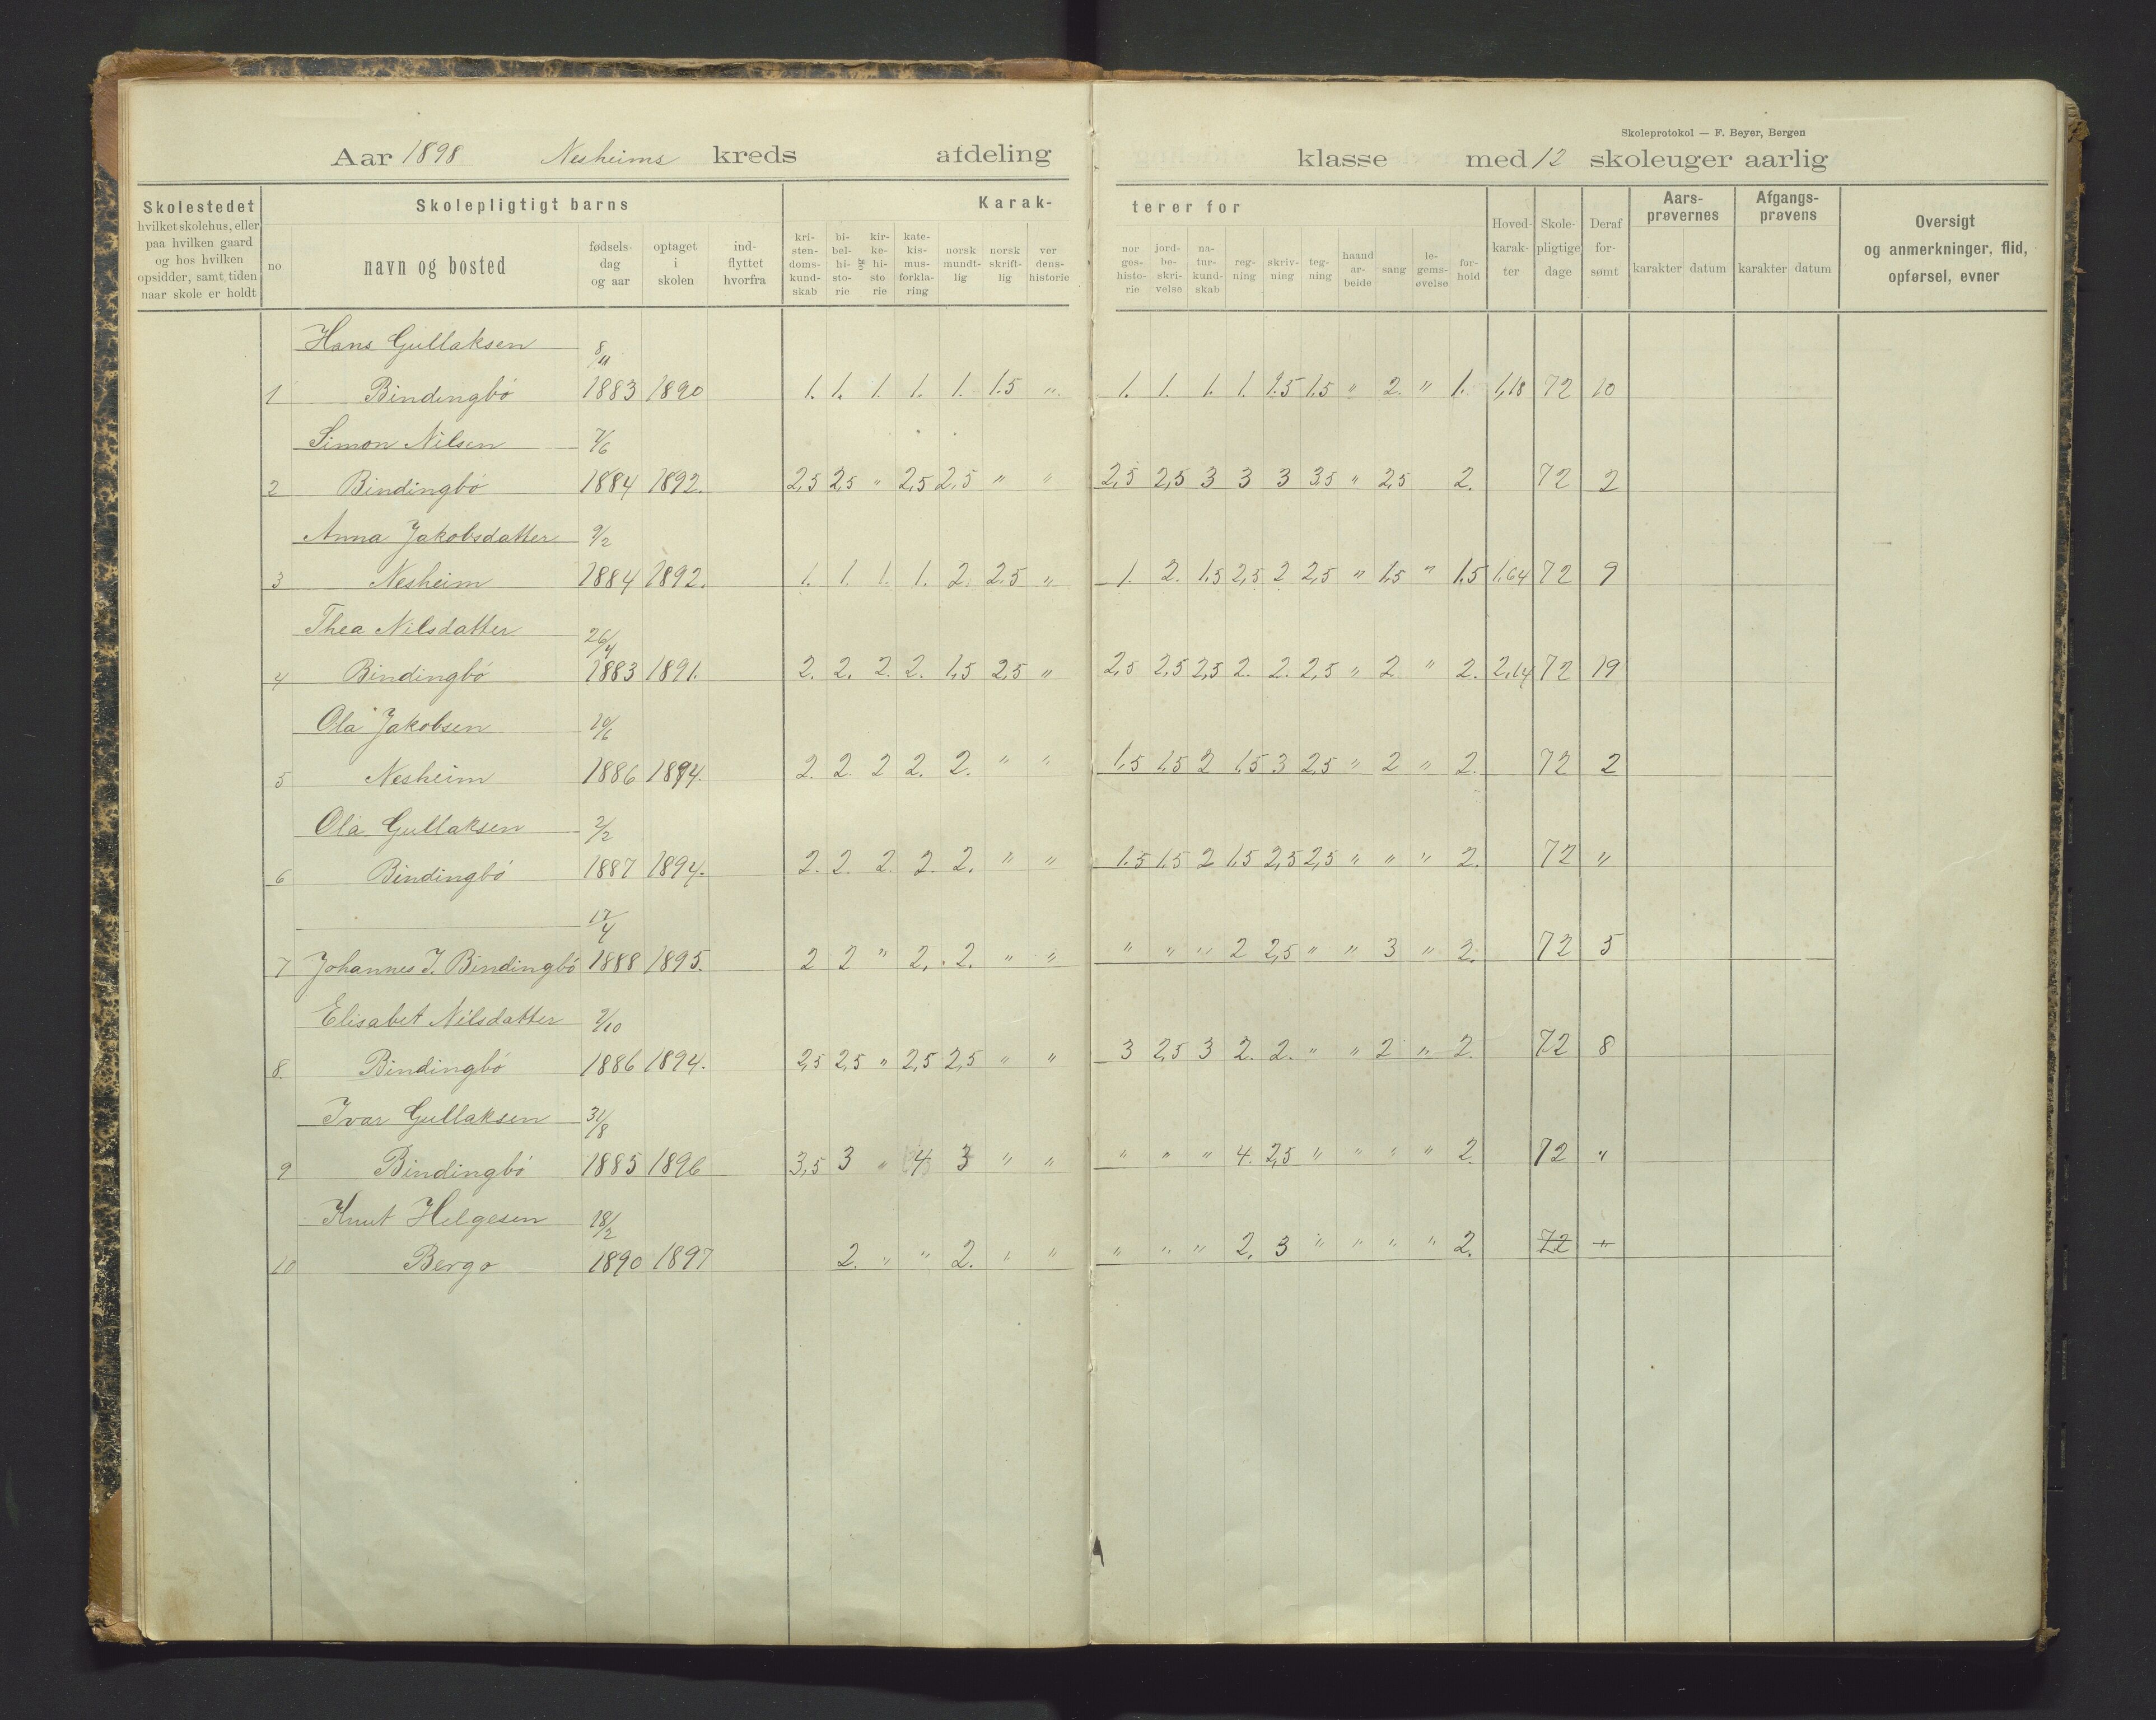 Skoleprotokol — F. Beyer, Bergen
Aar 1898 Nesheims kreds afdeling klasse med 12 skoleuger aarlig
Skolestedet hvilket skolehus, eller paa hvilken gaard og hos hvilken opsidder, samt tiden naar skole er holdt
Skolepligtigt barns
no navn og bosted fødsels-dag og aar optaget i skolen ind-flyttet hvorfra
Karak- terer for
kri-sten-doms-kund-skab bi-bel-hi-sto-rie kir-ke-hi-sto rie kate-kis-mus-forkla-ring norsk mundt-lig norsk skrift-lig ver dens-historie
nor ges-histo-rie jord-be-skri-velse na-tur-kund-skab reg-ning skriv-ning teg-ning haand ar-beide sang le-gems-øvelse for-hold
Hoved-karak-ter Skole-pligtige dage Deraf for-sømt
Aars-prøvernes karakter datum
Afgangs-prøvens karakter datum
Oversigt og anmerkninger, flid, opførsel, evner
Hans Gullaksen 8/11
1 Bindingbó 1883 1890 1. 1. 1. 1. 1. 1.5 " 1. 1. 1. 1. 1.5 1.5 " 2. " 1. 1,18 72 10
Simon Nilsen 7/6
2 Bindingbó 1884 1892. 2,5 2,5 " 2,5 2,5 " " 2,5 2,5 3 3 3 3,5 " 2,5 2. 72 2
Anna Jakobsdatter 9/2
3 Nesheim 1884 1892. 1. 1. 1. 1. 2. 2.5 " 1. 2. 1,5 2,5 2 2,5 " 1,5 " 1,5 1.64 72 9
Thea Nilsdatter 26/4
4 Bindingbó 1883 1891. 2. 2. 2. 2. 1,5 2,5 " 2,5 2,5 2,5 2. 2. 2,5 " 2 " 2. 2,14 72 19
Ola Jakobsen 10/6
5 Nesheim 1886 1894. 2. 2. 2 2. 2. " " 1,5 1,5 2 1,5 3 2,5 " 2 " 2. 72 2
Ola Gullaksen 2/2
6 Bindingbó 1887 1894. 2. 2. 2. 2. 2. " " 1.5 1.5 2 1,5 2,5 2,5 " " " 2. 72 "
17/4
7 Johannes J. Bindingbó 1888 1895. 2 2 " 2. 2. " " " " " 2 2,5 " " 3 " 2. 72 5
Elisabet Nilsdatter 9/10
8. Bindingbó 1886 1894. 2,5 2,5 " 2,5 2,5 " " 3 2,5 3 2. 2. " " 2 " 2 72 8
Ivar Gullaksen 31/8
9 Bindingbó 1885 1896 3,5 3 " 4 3 " " " " " 4. 2,5 " " " " 2. 72 "
Knut Helgesen 18/2
10 Bergo 1890 1897 2. " " 2. " " " " " 2. 3 " " " " 2. 72 "